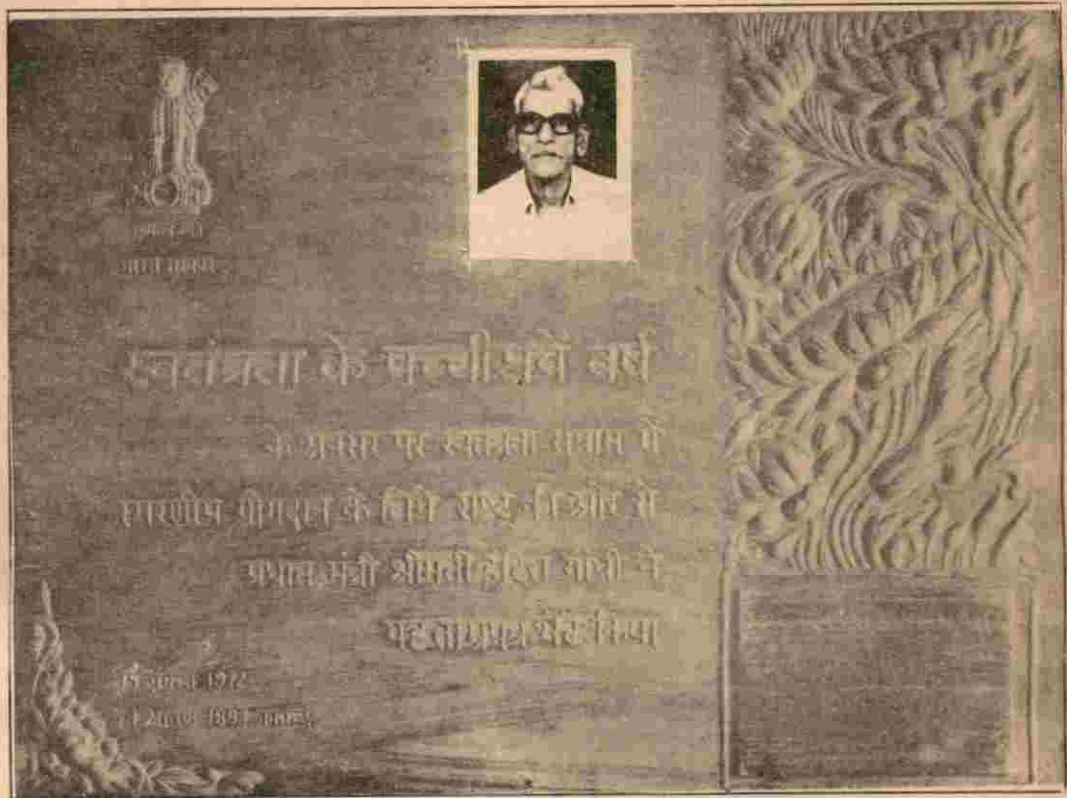 स्वतंत्रता के पच्चीसवें वर्ष
के अवसर पर स्वतंत्रता संग्राम में
स्मरणीय योगदान के लिये राष्ट्र की ओर से
प्रधान मंत्री श्रीमती इंदिरा गांधी ने
यह ताम्रपत्र भेंट किया
15 अगस्त 1972
24 श्रावण 1894